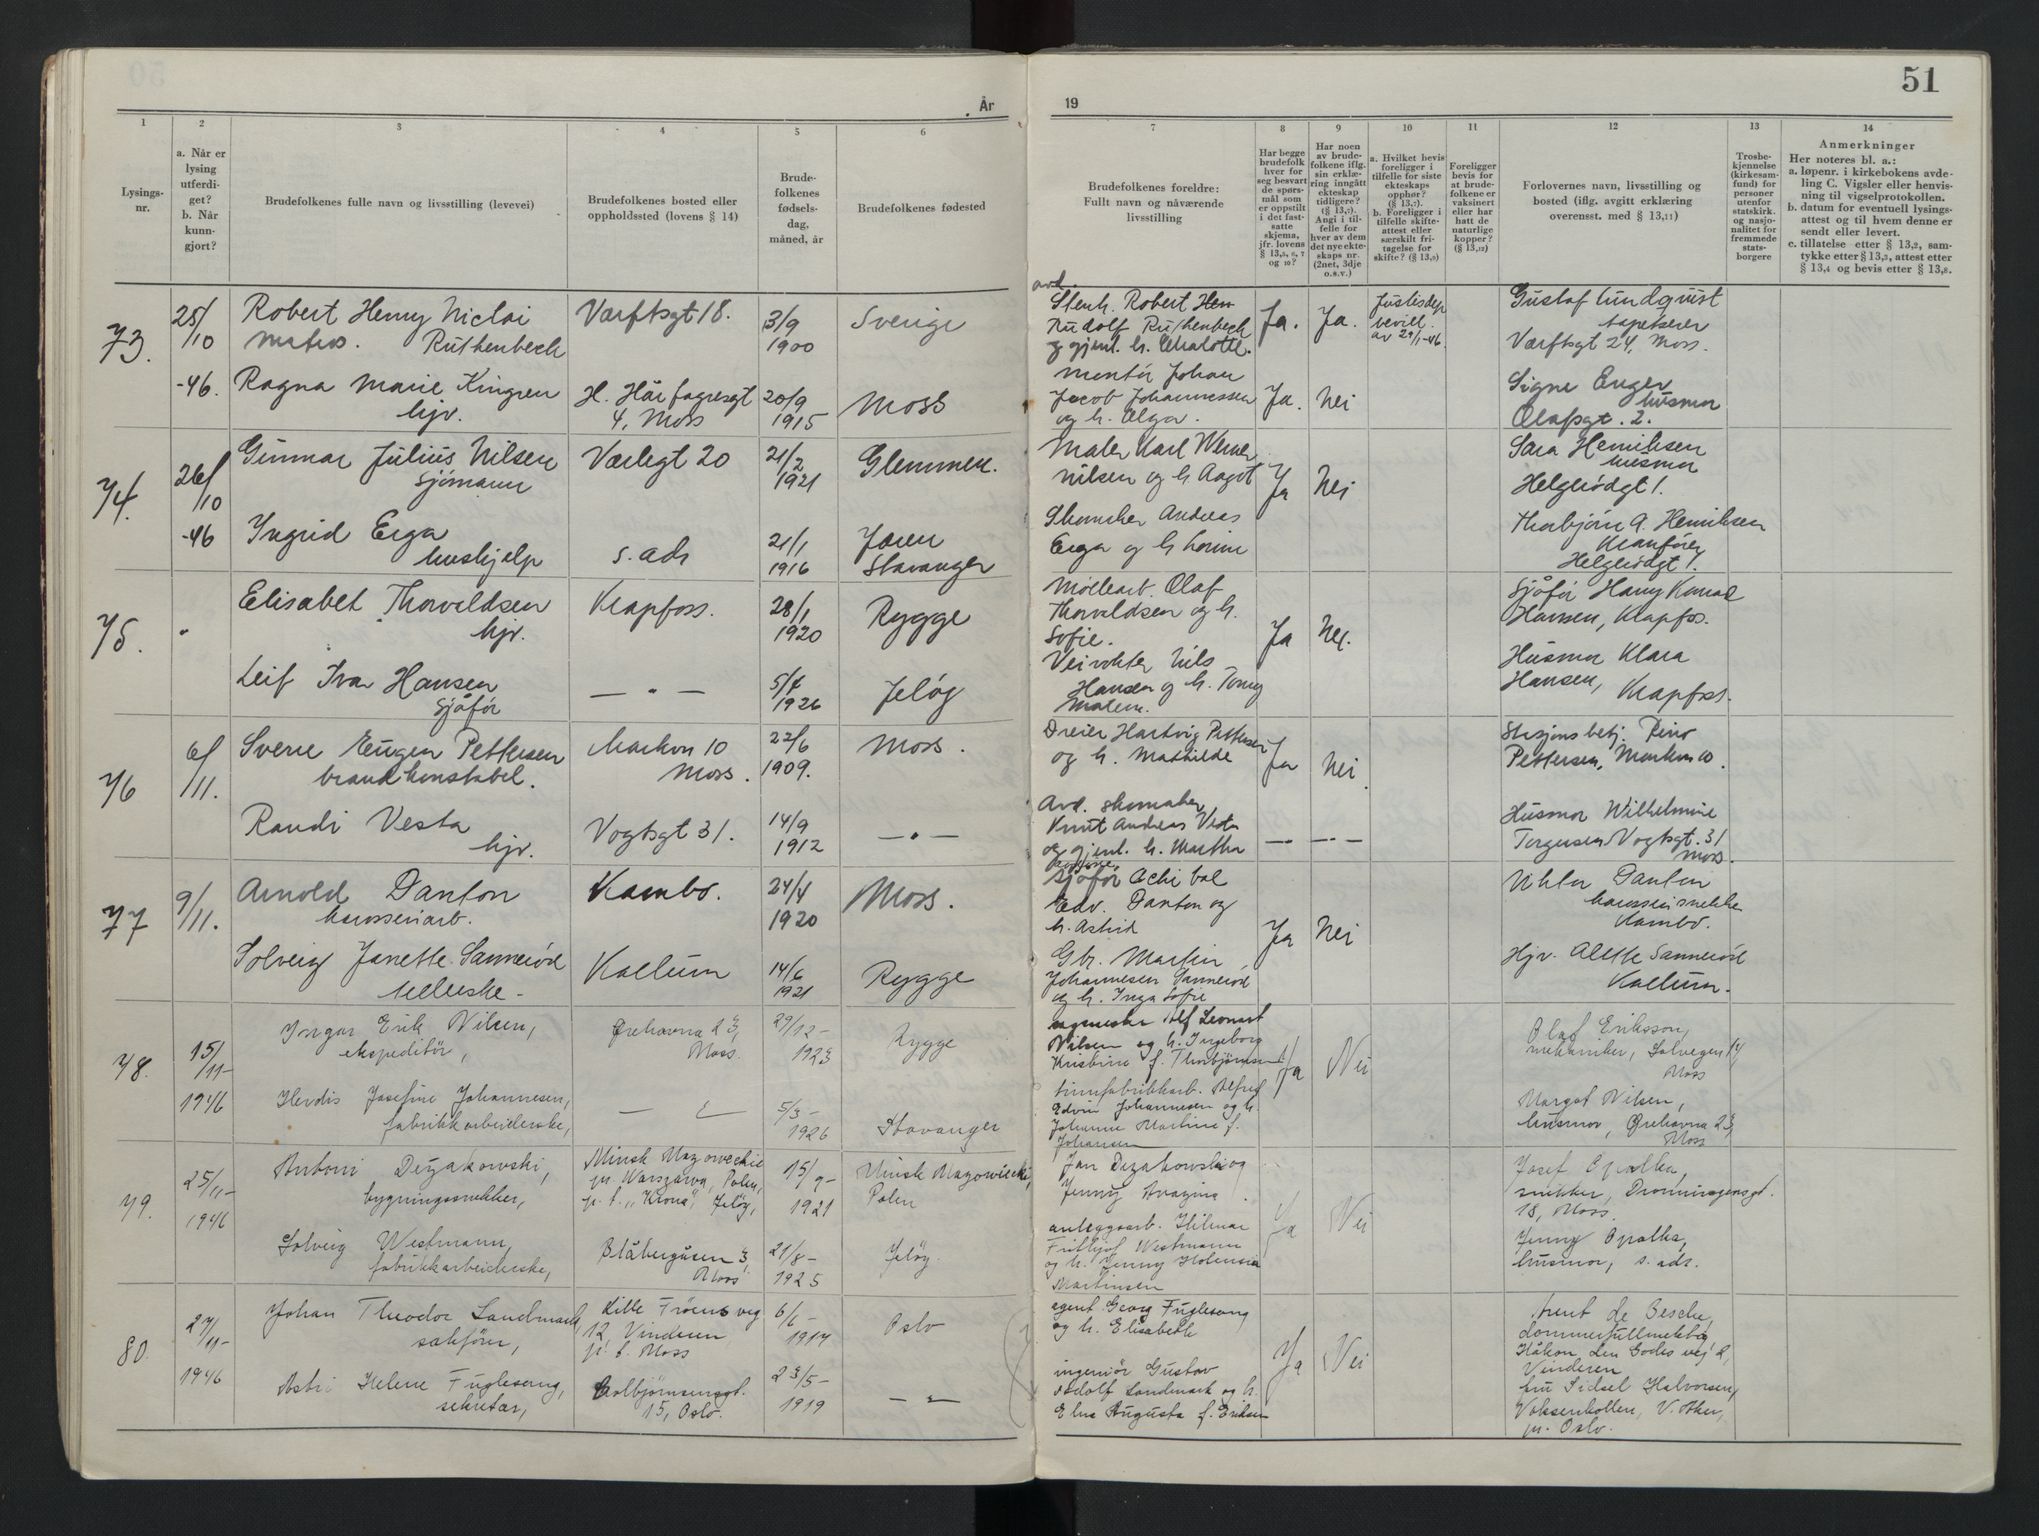 51
År
19
1
2
3
4
5
6
7
8
9
10
11
12
13
14
Lysings-
nr.
a. Når er
lysing
utferdi-
get?
b. Når
kunn-
gjort?
Brudefolkenes fulle navn og livsstilling (levevei)
Brudefolkenes bosted eller
oppholdssted (lovens § 14)
Brude-
folkenes
fødsels-
dag,
måned, år
Brudefolkenes fødested
Brudefolkenes foreldre:
Fullt navn og nåværende
livsstilling
Har begge
brudefolk
hver for
seg besvart
de spørs-
mål som
er oppstilt
i det fast-
satte
skjema,
jfr. lovens
§ 13,5, 6, 7
og 10?
Har noen
av brude-
folkene iflg.
sin erklæ-
ring inngått
ekteskap
tidligere?
(§ 13,7).
Angi i til-
felle for
hver av dem
det nye ekte-
skaps nr.
(2net, 3dje
o.s.v.)
a. Hvilket bevis
foreligger i
tilfelle for siste
ekteskaps
opphør?
(§ 13,7).
b. Foreligger i
tilfelle skifte-
attest eller
særskilt fri-
tagelse for
skifte? (§ 13,9)
Foreligger
bevis for
at brude-
folkene er
vaksinert
eller har
hatt de
naturlige
kopper?
(§ 13,12)
Forlovernes navn, livsstilling og
bosted (iflg. avgitt erklæring
overensst. med § 13,11)
Trosbe-
kjennelse
(kirkesam-
fund) for
personer
utenfor
statskirk.
og nasjo-
nalitet for
fremmede
stats-
borgere
Anmerkninger
Her noteres bl. a.:
a. løpenr. i kirkebokens avde-
ling C. Vigsler eller henvis-
ning til vigselprotokollen.
b. datum for eventuell lysings-
attest og til hvem denne er
sendt eller levert.
c. tillatelse etter § 13,2, sam-
tykke etter § 13,3, attest etter
§ 13,4 og bevis etter § 13,8.
73.
25/10
-46.
Robert Henry Niclai
matros. Ruthenbech
Værftsgt 18.
3/9
1900
Sverige
avd.
Stenh. Robert Hen
Rudolf Ruthenbech
og gjenl. h. Charlotte.
Ja.
Ja.
Justisdep
bevill.
av 29/1-46.
Gustaf Lundquist
tapetserer
Værftsgt 24, Moss.
Ragna Marie Kingren
hjv.
H. Hårfagresgt
4, Moss
20/9
1915
Moss
Montør Johan
Jacob Johannessen
og h. Olga.
Ja.
Nei
Signe Enger
husmor
Olafsgt. 2.
74.
26/10
-46
Gunnar Julius Nilsen
sjømann
Værlegt 20
21/2
1921
Glemmen.
Maler Karl Werner
Nilsen og h Aagot
Ja
Nei
Sara Henriksen
husmor
Helgerødgt 1.
Ingrid Erga
hushjelp
s. ads
21/1
1916
Jæren
Stavanger
Skomaker Andreas
Erga og h Lorine
Thorbjørn A. Henriksen
kranfører
Helgerødgt 1.
75.
"
Elisabet Thorvaldsen
hjv.
Krapfoss.
28/1
1920
Rygge
Møllearb. Olaf
Thorvaldsen og h.
Sofie.
Ja
Nei.
Sjåfør Harry Konrad
Hansen, Krapfos.
Leif Ivar Hansen
sjåfør
— " —
5/4
1926
Jeløy
Veivokter Nils
Hansen og h. Tomy
Malene.
Husmor Klara
Hansen, Krapfoss.
76
6/11.
Sverre Eugen Pettersen
brandkonstabel.
Markvn 10
Moss.
22/6
1909.
Moss.
Dreier Hartvig Pettersen
og h. Mathilde
Ja
Nei
Stasjonsbetj. Reino
Pettersen, Markvn 10.
Randi Vesta
hjv.
Vogtsgt 31.
14/9
1912
— " —
Avd. skomaker
Knut Andreas Vesta
og gjenl. h. Martha
— " —
— " —
Husmor Wilhelmine
Torgersen Vogtsgt. 31
Moss.
77
9/11.
Arnold Danton
karosseriarb.
Kambo.
24/4
1920
Moss.
sjåfør Achibal
Edv. Danton og
h. Astrid
Ja
Nei
Viktor Danton
karosserisnekker
Kambo.
Solveig Janette Sannerød
Kallum
14/6
1921
Rygge
Gbr. Martin
Johannesen Sannerød
og h. Inga Sofie
Hjv. Alette Sannerød
Kallum.
78.
15/11-
1946
Ingar Erik Nilsen,
ekspeditør,
Ørehavna 23,
Moss.
29/12-
1923
Rygge
Alf Leonart
Nilsen og h. Ingeborg
Kristine f. Thorbjørnsen
Ja
Nei
Olaf Eriksson,
mekaniker, Solvegen 14
Moss
Herdis Josefine Johannesen,
fabrikkarbeiderske,
— " —
5/3-
1926
Stavanger
tinnfabrikkarb. Alfred
Edvin Johannesen og h.
Johanne Martine f.
Johansen
Margot Nilsen,
husmor, Ørehavna 23,
Moss
79.
25/11-
1946
Antoni Dezakowski,
bygningssnekker,
Minsk Mazowieckie
pr. Warszawa, Polen,
p. t. „Krona", Jeløy,
15/9-
1921
Minsk Mazowiecki,
Polen
Jan Dezakowski og
Jenny
Ja
Nei
Josef Opalka,
snikker, Dronningensgt.
18, Moss.
Solveig Westmann,
fabrikkarbeiderske,
Blåbergåsen 3,
Moss
21/8-
1925
Jeløy
anleggsarb. Hilmar
Fritjof Westmann
og h. Jenny
Martinsen
Jenny Opalka,
husmor, s. adr.
80.
27/11-
1946
Johan Theodor Landmark,
sakfører,
Lille Frøens veg
12, Vinderen
p. t. Moss
6/6-
1917
Oslo
agent Georg Fuglesang
og h. Elisabeth
Ja
Nei
Arent de Besche,
dommerfullmektig
Håkon den Godes vej 2,
Vinderen
Astri Helene Fuglesang,
sekretær,
Colbjørnsensgt.
15, Oslo.
23/5-
1919
— " —
ingeniør Gustav
Adolf Landmark og h.
Elna Augusta f. Eriksen
fru Sidsel Halvorsen,
Voksenkollen, V. Aker,
pr. Oslo.